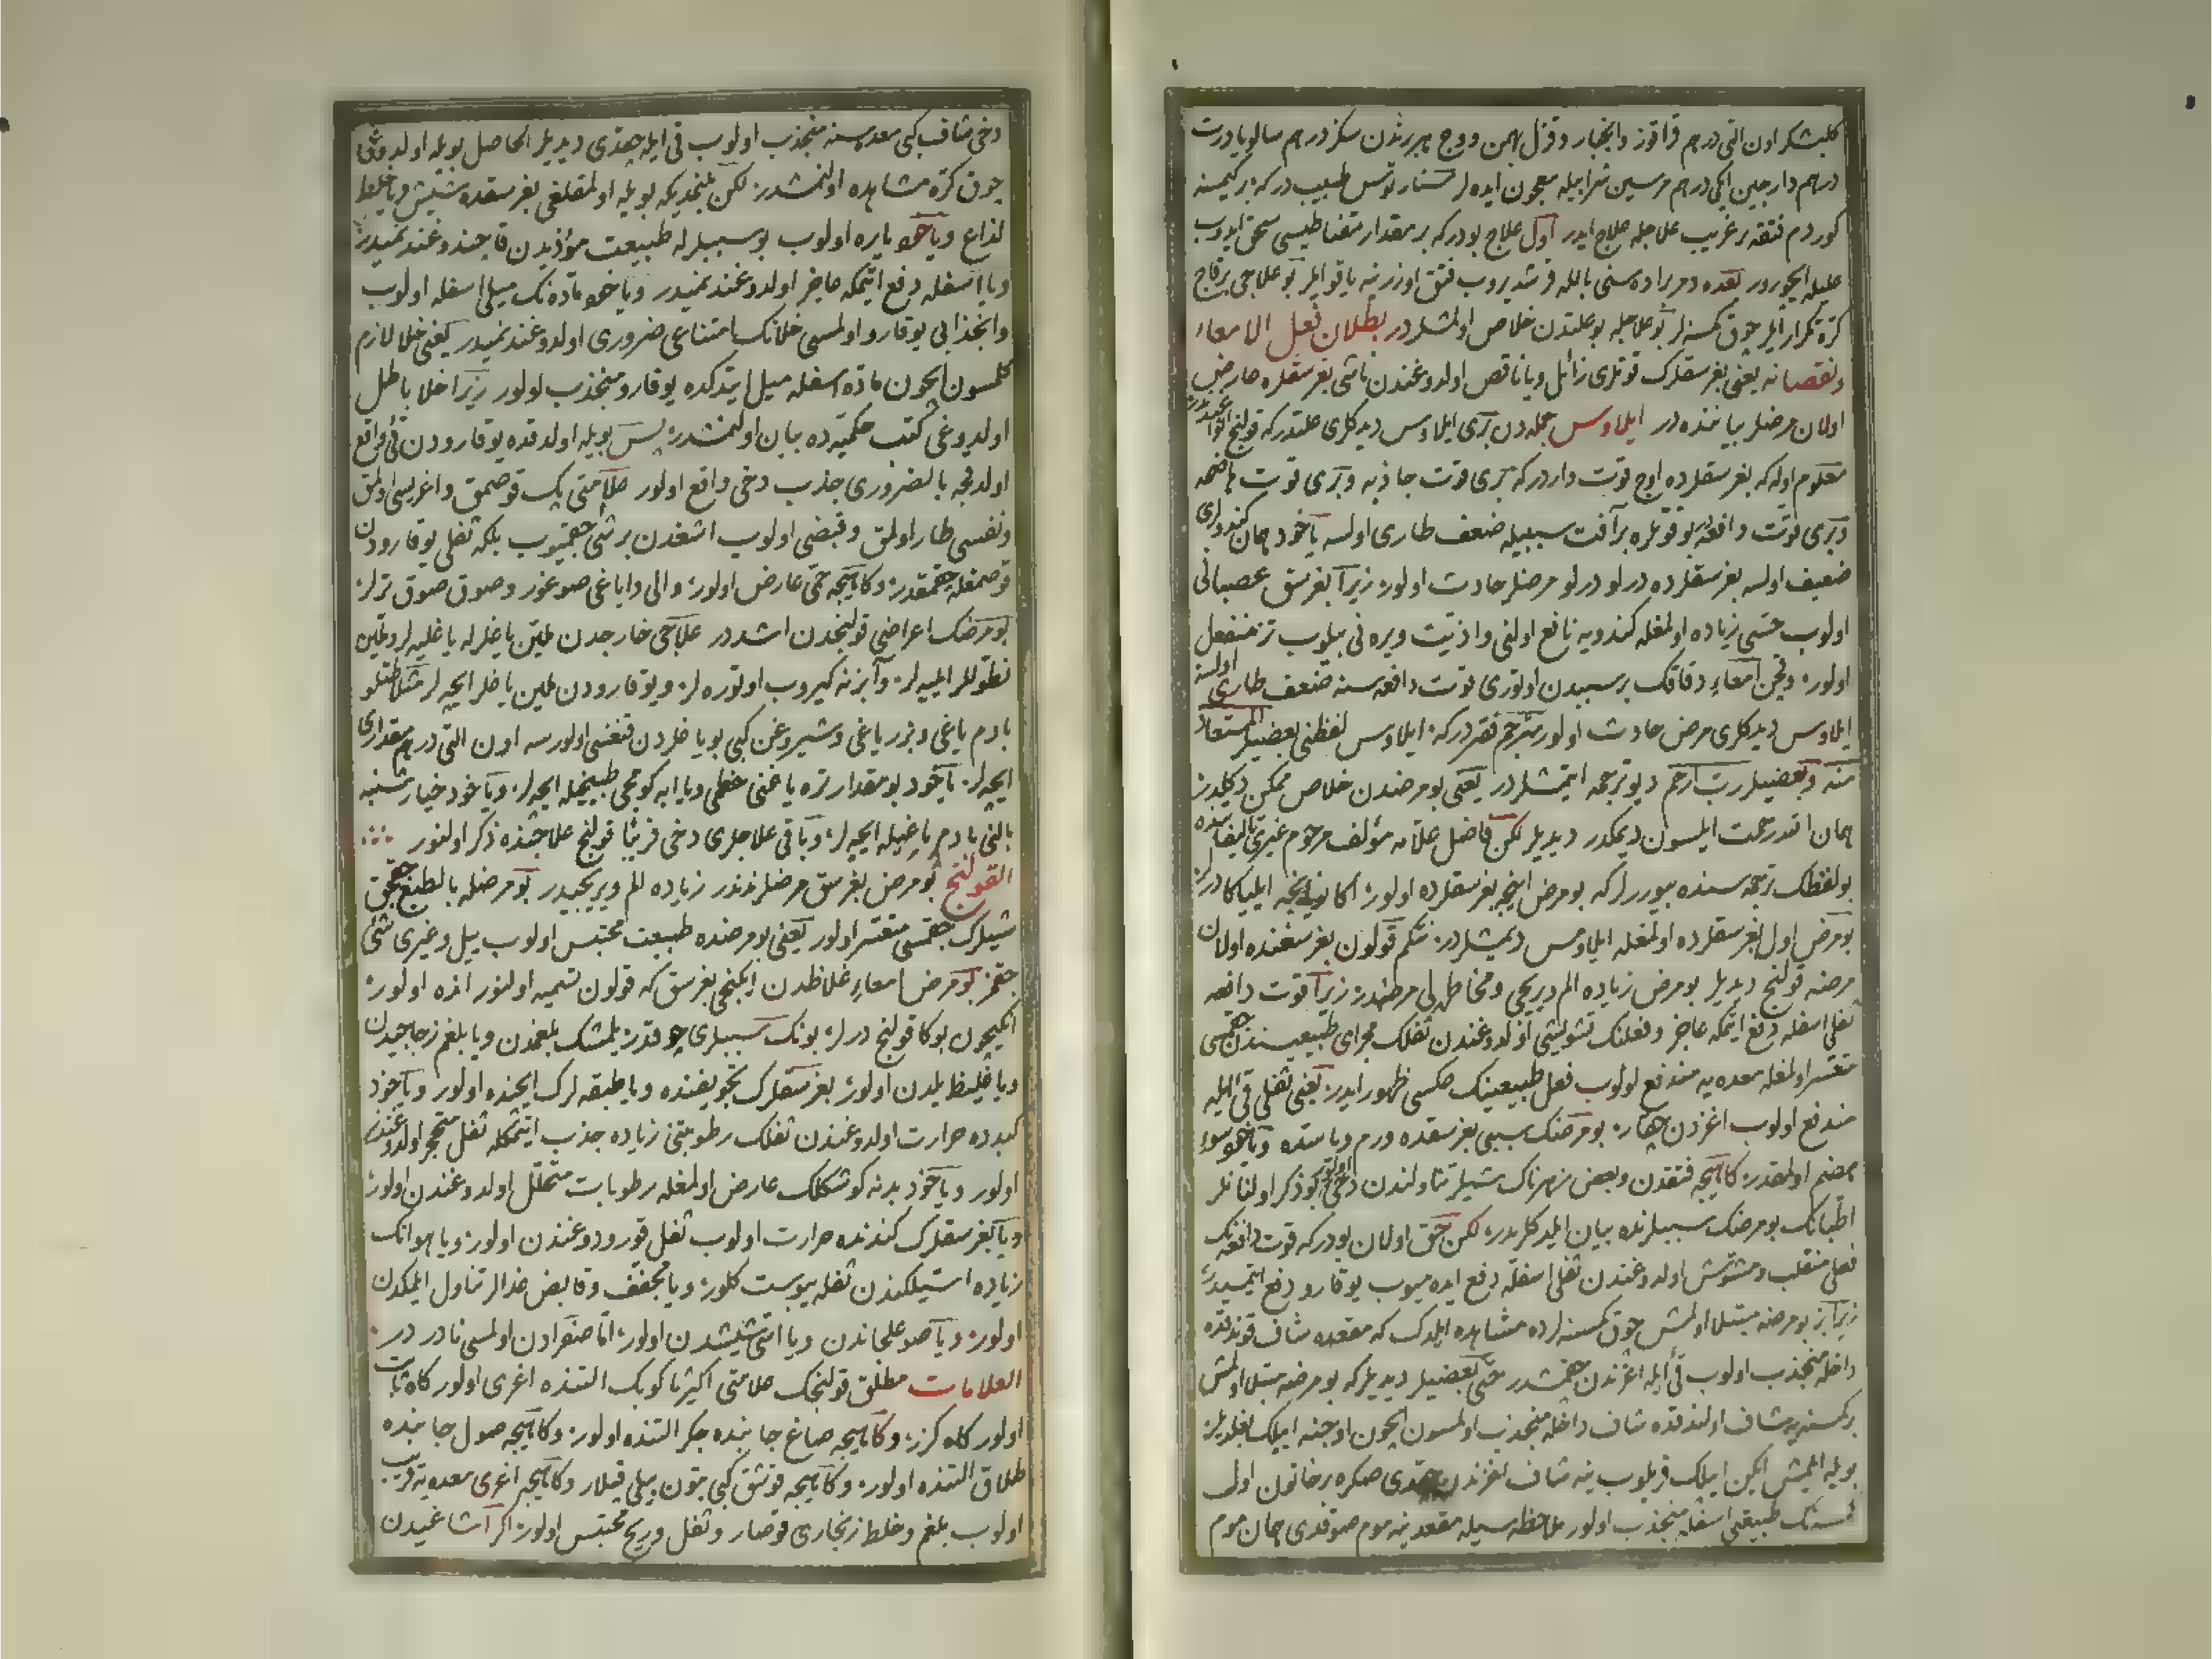 كلبشكر اون التی درهم قراقوز وانجبار وقزل بهمن ووج هر برندن سكز درهم
درهم دارچین ایكی درهم مرسین شرابیله معجون ایده لر طبیب دركه بر كیمسنه
كوردم فتقه بر غریب علاجله علاج ایدر اول علاج بودركه بر مقدار مقناطیسی سحق ایدوب
علیله ایچورر بعده دمر بالله قرشدیروب فتق اوزرینه یاقو ایلر بو علاجی بر قاچ
كره تكرار ایلر چوق كمسنه لر بو علاجله بو علتدن خلاص اولمشلردر بطلان فعل الامعاء
ونقصانه یعنی بغرسقلرك قوتلری زائل ویا ناقص اولدوغندن ناشی بغرسقلره عارض
اولان مرضلر بیاننده در ایلاوس جمله دن بری ایلاوس دیدكلری علتدركه قولنج
معلوم اوله كه بغرسقلرده اوچ قوت واردركه بری قوت جاذبه وبری قوت هاضمه
وبری قوت دافعه بو قوتلره بر آفت سببیله ضعف طاری اولسه یاخود همان كندولری
ضعیف اولسه بغرسقلرده درلو درلو مرضلر حادث اولور زیرا بغرسق عصبانی
اولوب حسی زیاده اولمغله كندویه نافع اولنی واذیت ویره نی بیلوب تز منفعل
اولور وقچن امعاء دقاقك بر سببدن اوتوری قوت دافعه سنه ضعف طاری اولسه
ایلاوس دیدكلری مرض حادث اولور مترجم فقیر دركه ایلاوس لفظنی بعضیلر المستعاذ
منه وبعضیلر رب ارحم دیو ترجمه ایتمشلردر یعنی بو مرضدن خلاص ممكن دكلدر
همان الله رحمت ایلسون دیمكدر دیدیلر لكن فاضل علامه مؤلف مرحوم غیری تألیفاتنده
بو لفظك ترجمه سنده بیوررلركه بو مرض اینجه بغرسقلرده اولور اكا یونانیجه ایلیا درلر
بو مرض اول بغرسقلرده اولمغله ایلاوس دیمشلردر نتكم قولون بغرسغنده اولان
مرضه قولنج دیدیلر بو مرض زیاده الم ویریجی ومخاطره لی مرضدر زیرا قوت دافعه
ثفلی اسفله دفع ایتمكه عاجز وفعلنك تشویشی اولدوغندن ثفلك مجرای طبیعیسندن چقمسی
متعسر اولمغله معده یه مندفع اولوب فعل طبیعینك عكسی ظهور ایدر یعنی ثفلی قی ایله
مندفع اولوب اغزدن چقار بو مرضك سببی بغرسقده ورم ویا سده ویاخود سوء
هضم اولمقدر كاهیجه فتقدن وبعض زهرناك شیلر تناولندن دخی اولور بو ذكر اولنانلر
اطبانك بو مرضك سببلرنده بیان ایلدكلریدر لكن حق اولان بودركه قوت دافعه نك
فعلی منقلب ومشوش اولدوغندن ثفلی اسفله دفع ایده میوب یوقارو دفع ایتمسیدر
زیرا بز بو مرضه مبتلا اولمش چوق كمسنه لرده مشاهده ایلدك كه مقعده شاف قوندقده
داخله منجذب اولوب قی ایله اغزندن چقمشدر حتی بعضیلر دیدیلركه بو مرضه مبتلا اولمش
بر كمسنه یه شاف اولندقده شاف داخله منجذب اولمسون ایچون اوجنه ایپلك بغلدیلر
بویله ایلمیش ایكن ایپلك قریلوب ینه شاف اغزندن چقدی صكره بر خاتون اول
خسته نك طبیعتی اسفله منجذب اولور ملاحظه سیله مقعدینه موم صوقدی همان موم
دخی شاف كبی معده سنه منجذب اولوب قی ایله چقدی دیدیلر الحاصل بویله اولدوغی
چوق كره مشاهده اولنمشدر لكن بلنمدیكه بویله اولمقلغی بغرسقده شیش ویا خلط
لذاع ویاخود یاره اولوب بو سببلرله طبیعت مؤذیدن قاچندوغندنمیدر
ویا اسفله دفع ایتمكه عاجز اولدوغندنمیدر ویاخود ماده نك میلی اسفله اولوب
وانجذابی یوقارو اولمسی خلانك امتناعی ضروری اولدوغندنمیدر یعنی خلا لازم
كلمسون ایچون ماده اسفله میل ایتدكده یوقارو منجذب اولور زیرا خلا باطل
اولدوغی كتب حكمیه ده بیان اولنمشدر پس بویله اولدقده یوقارودن قی واقع
اولدقچه بالضروری جذب دخی واقع اولور علامتی پك قوصمق واغریسی اولمق
ونفسی طار اولمق وقبضی اولوب اشغدن بر شی چقمیوب بلكه ثفلی یوقارودن
قوصمغله چقمقدر وكاهیجه حمی عارض اولور والی وایاغی صوغور وصوق صوق ترلر
بو مرضك اعراضی قولنجدن اشددر علاجی خارجدن ملین یاغلرله یاغلیه لر وملین
نطوللر ایلیه لر وآبزنه كیروب اوتوره لر ویوقارودن ملین یاغلر ایچه لر مثلا طتلو
بادم یاغی وبزر یاغی وشیروغن كبی بو یاغلردن قنغسی اولورسه اون التی درهم مقداری
ایچه لر یاخود بو مقدار تره یاغنی خطمی ویا ابه كومجی طبیخیله ایچه لر ویاخود خیارشنبه
بالنی بادم یاغیله ایچه لر وباقی علاجلری دخی قریبا قولنج علاجنده ذكر اولنور
القولنج بو مرض بغرسق مرضلرنندر زیاده الم ویریجیدر بو مرضله بالطبع چقیجق
شیلرك چقمسی متعسر اولور یعنی بو مرضده طبیعت محتبس اولوب ییل وغیری شی
چقمز بو مرض امعاء غلاظدن ایكنجی بغرسق كه قولون تسمیه اولنور انده اولور
انكیچون بوكا قولنج درلر بونك سببلری چوقدر یلمشك بلغمدن ویا بلغم زجاجیدن
ویا غلیظ یلدن اولور بغرسقلرك تجویفنده ویا طبقه لرك ایچنده اولور ویاخود
كبدده حرارت اولدوغندن ثفلك رطوبتنی زیاده جذب ایتمكله ثفل متحجر اولدوغندن
اولور ویاخود بدنه كوشكلك عارض اولمغله رطوبات متحلل اولدوغندن اولور
ویا بغرسقلرك كندنده حرارت اولوب ثفل قورودوغندن اولور ویا هوانك
زیاده استیلكندن ثفله یبوست كلور ویا مجفف وقابض غدالر تناول ایلمكدن
اولور ویا صوغلجاندن ویا التی شیشدن اولور اما صفرادن اولمسی نادر در
العلامات مطلق قولنجك علامتی اكثریا كوبك التنده اغری اولور كاه ثابت
اولور كاه كزر وكاهیجه صاغ جانبنده جكر التنده اولور وكاهیجه صول جانبنده
طلاق التنده اولور وكاهیجه قوشق كبی بتون بیلی قپلار وكاهیجه اغری معده یه قریب
اولوب بلغم وخلط زنجاری قوصار وثفل وریح محتبس اولور اكر آشاغیدن